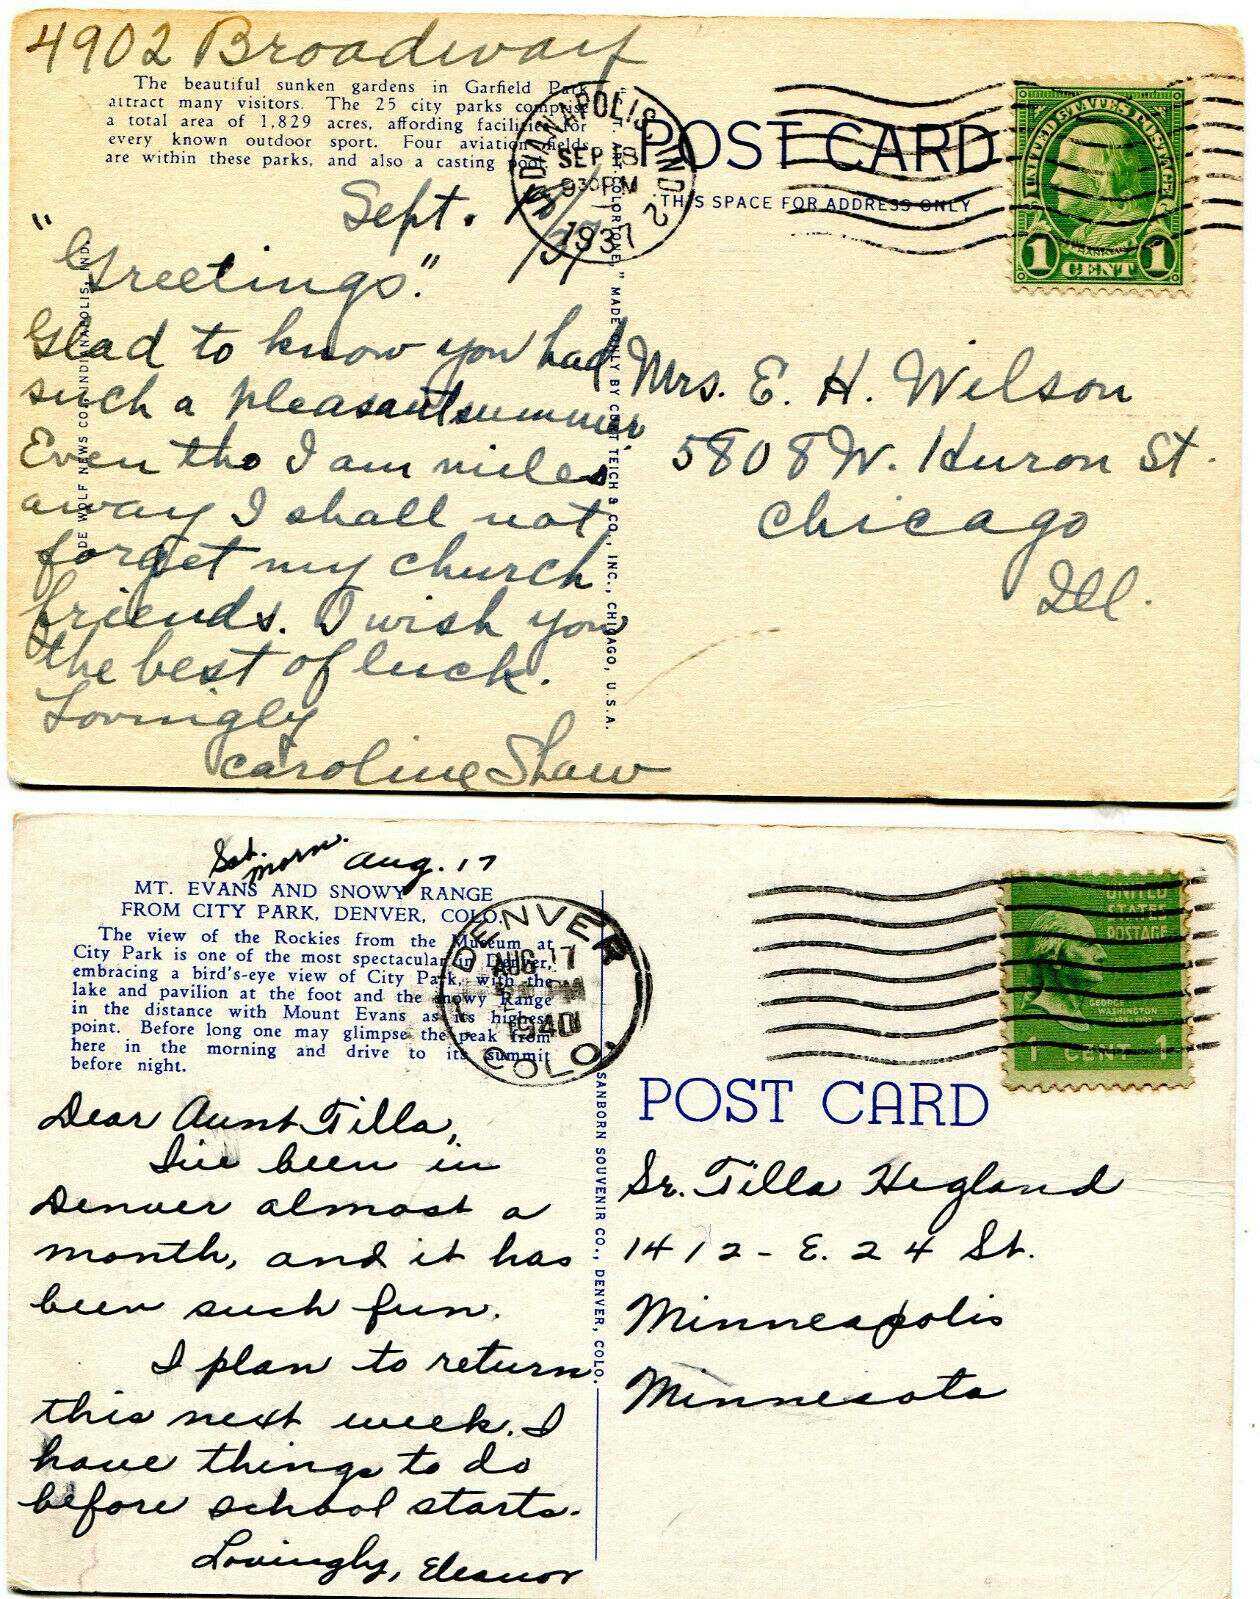 4902 Broadway
The beautiful sunken gardens in Garfield Park
attract many visitors. The 25 city parks comprise
a total area of 1,829 acres, affording facilities for
every known outdoor sport. Four aviation fields
are within these parks, and also a casting pool.
INDIANAPOLIS, IND. 2
SEP 18
930 PM
1937
POST CARD
THIS SPACE FOR ADDRESS ONLY
UNITED STATES POSTAGE
FRANKLIN
1 CENT 1
Sept. 18/37
"Greetings."
Glad to know you had
such a pleasant summer.
Even tho I am miles
away I shall not
forget my church
friends. I wish you
the best of luck.
Lovingly
Caroline Shaw
DE WOLF NEWS CO., INDIANAPOLIS, IND.
COLORTONE," MADE ONLY BY CURT TEICH & CO., INC., CHICAGO, U.S.A.
Mrs. E. H. Wilson
5808 W. Huron St.
Chicago
Ill.
Sat. Morn. Aug. 17
MT. EVANS AND SNOWY RANGE
FROM CITY PARK, DENVER, COLO.
The view of the Rockies from the Museum at
City Park is one of the most spectacular in Denver,
embracing a bird's-eye view of City Park, with the
lake and pavilion at the foot and the snowy Range
in the distance with Mount Evans as its highest
point. Before long one may glimpse the peak from
here in the morning and drive to its summit
before night.
DENVER
AUG 17
PM
1940
COLO.
UNITED
STATES
POSTAGE
GEORGE
WASHINGTON
1789-1797
1 CENT 1
POST CARD
Dear Aunt Tilla,
I've been in
Denver almost a
month, and it has
been such fun.
I plan to return
this next week. I
have things to do
before school starts.
Lovingly, Eleanor
SANBORN SOUVENIR CO., DENVER, COLO.
Sr. Tilla Hegland
1412 - E. 24 St.
Minneapolis
Minnesota